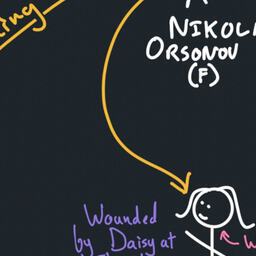 NIKOL
ORSONOV
(F)
Wounded
by Daisy at